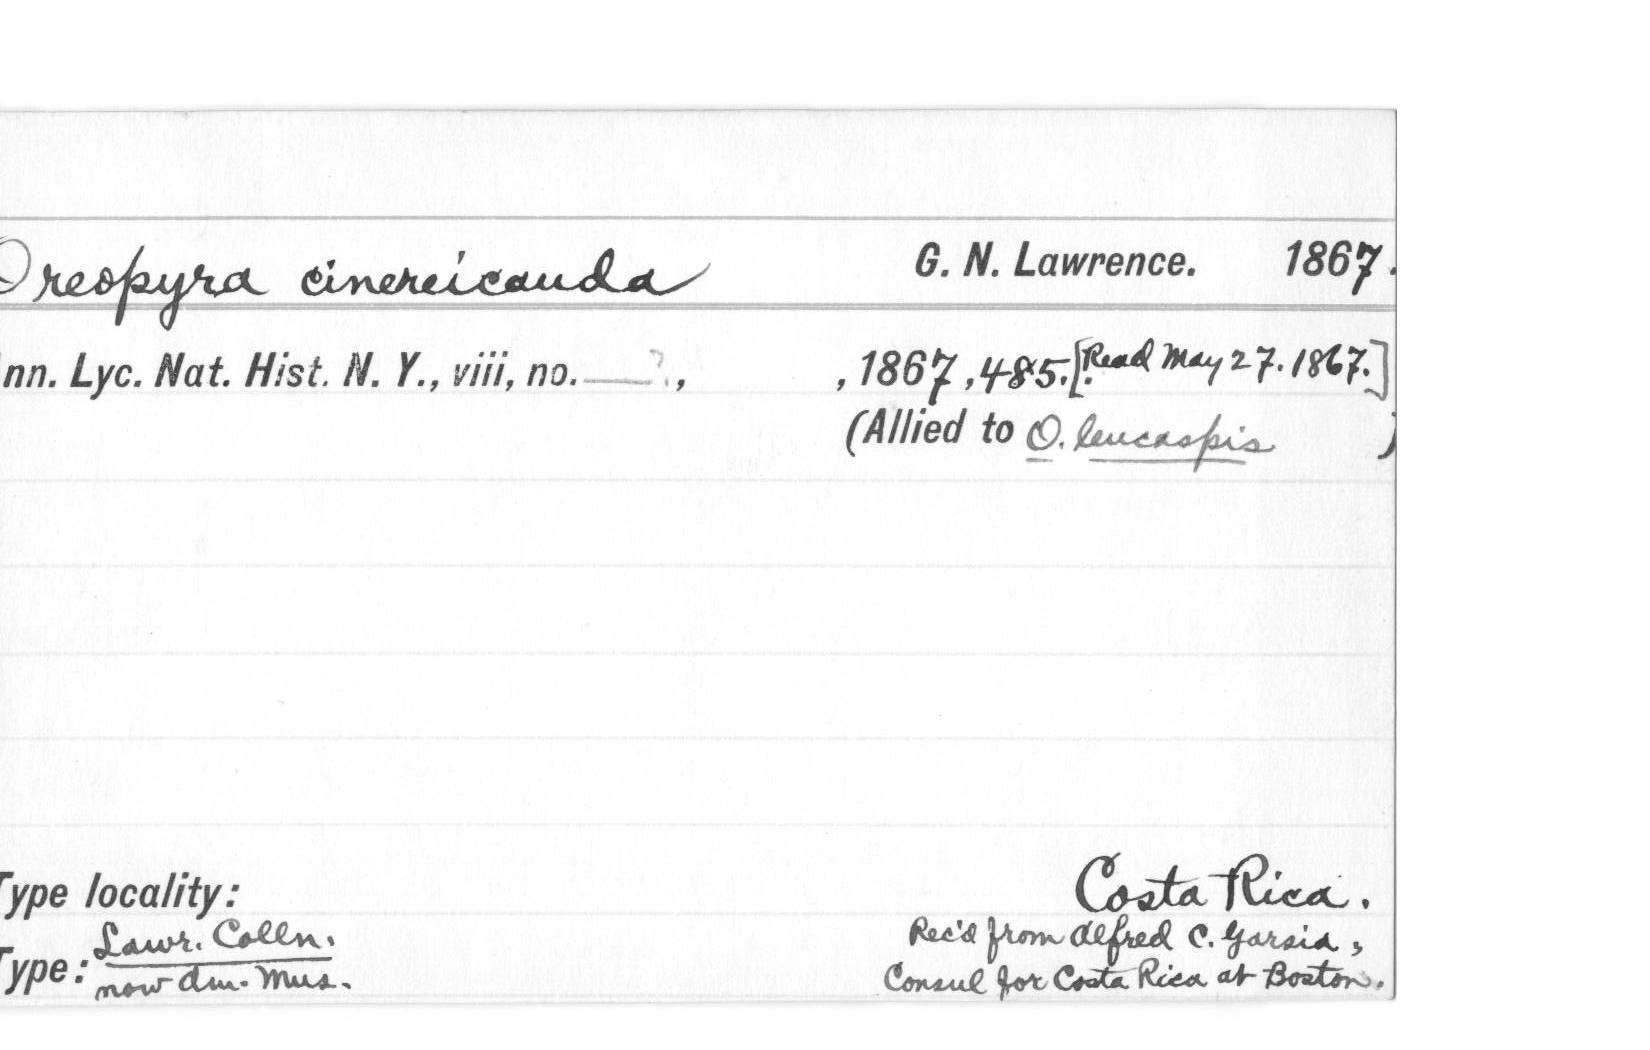 Oreopyra cinereicauda G. N. Lawrence. 1867.
nn. Lyc. Nat. Hist. N. Y., viii, no. ——?, , 1867, 485. [Read May 27. 1867.]
(Allied to O. leucaspis )
Type locality: Costa Rica.
Lawr. Colln. Rec'd from Alfred C. Garsia,
Type: now Am. Mus. Consul for Costa Rica at Boston.